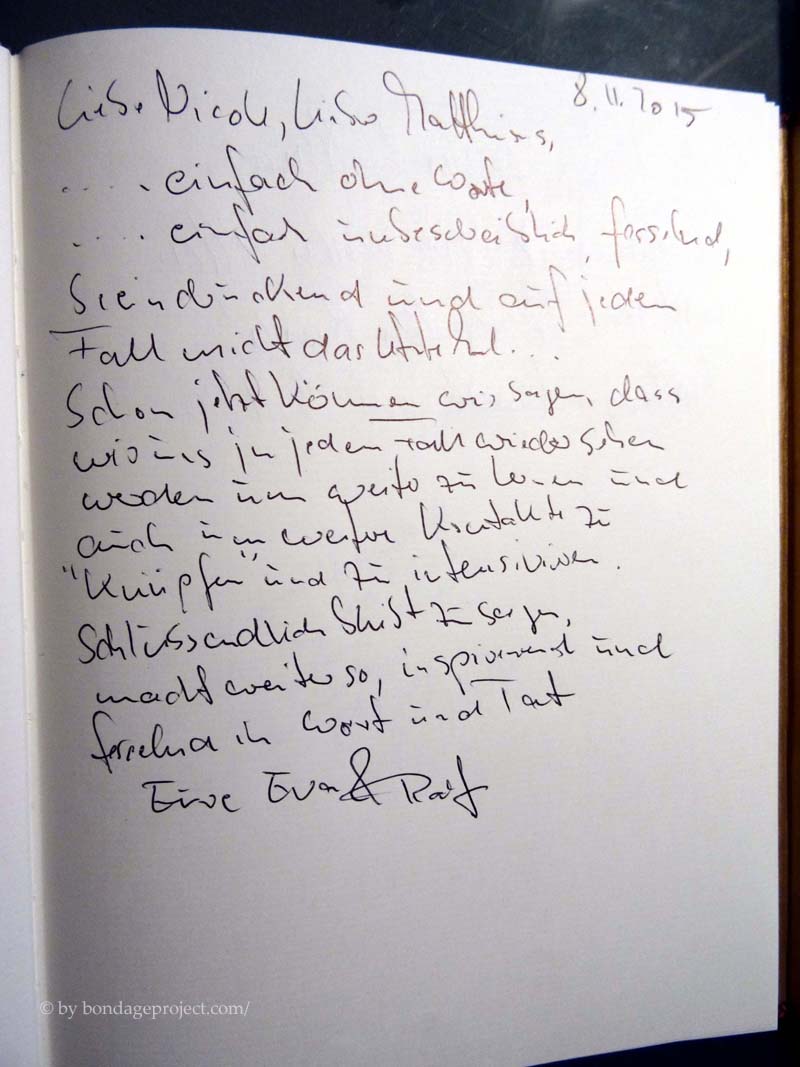 8.11.2015
Liebe Nicole, Lieber Matthias,
.... einfach ohne Worte,
.... einfach unbeschreiblich, fesselnd,
beeindruckend und auf jeden
Fall nicht das letzte Mal...
Schon jetzt können wir sagen, dass
wir uns in jedem Fall wieder sehen
werden um weiter zu lernen und
auch um weitere Kontakte zu
"Knüpfen" und zu intensivieren.
Schlussendlich zu sagen,
macht weiter so, inspirierend und
fesselnd in Wort und Tat
Eure Eva & Ralf
© by bondageproject.com/